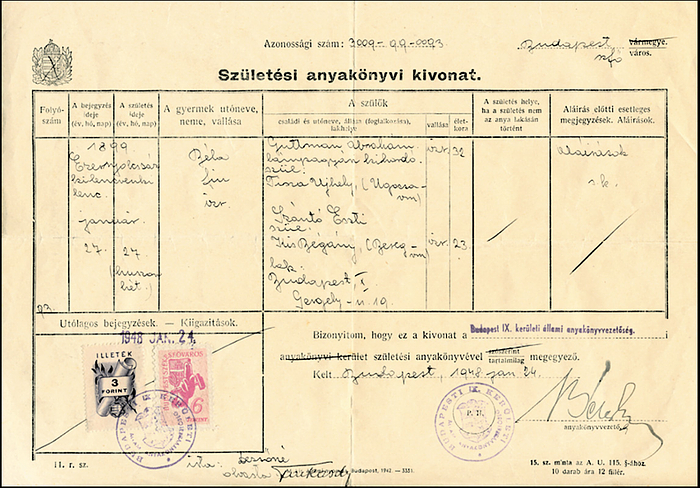 Azonossági szám: 3009-99-0093.
Budapest vármegye.
szfő város.
Születési anyakönyvi kivonat.
Folyó-szám
A bejegyzés ideje (év, hó, nap)
A születés ideje (év, hó, nap)
A gyermek utóneve, neme, vallása
A szülők
családi és utóneve, állása (foglalkozása), lakhelye
vallása
élet-kora
A születés helye, ha a születés nem az anya lakásán történt
Aláírás előtti esetleges megjegyzések. Aláírások.
1899
Ezernyolcszáz
kilencvenki
lenc.
január
27.
27
(huszon
hét.)
Béla
fiu
izr.
Guttman Abraham
izr. 32
szül:
Tisza Ujhely, (Ugocsa-
vm)
Szántó Eszti
szül:
Kis Bégány, (Bereg
vm)
izr. 23.
lak:
Budapest, I
Gergely-u. 19.
aláírások
s.k.
93.
Utólagos bejegyzések. — Kiigazítások.
1948 JAN. 24.
ILLETÉK
3
FORINT
BUDAPEST SZÉKESFŐVÁROS
6
FORINT
Bizonyítom, hogy ez a kivonat a Budapest IX. kerületi állami anyakönyvvezetőség. i
anyakönyvi kerület születési anyakönyvével szószerint tartalmilag megegyező.
Kelt Budapest, 1948 jan 24.
P. H.
anyakönyvvezető.
11. r. sz.
irta:
olvasta:
Budapest, 1942. — 3351.
15. sz. minta az A. U. 115. §-ához.
10 darab ára 12 fillér.